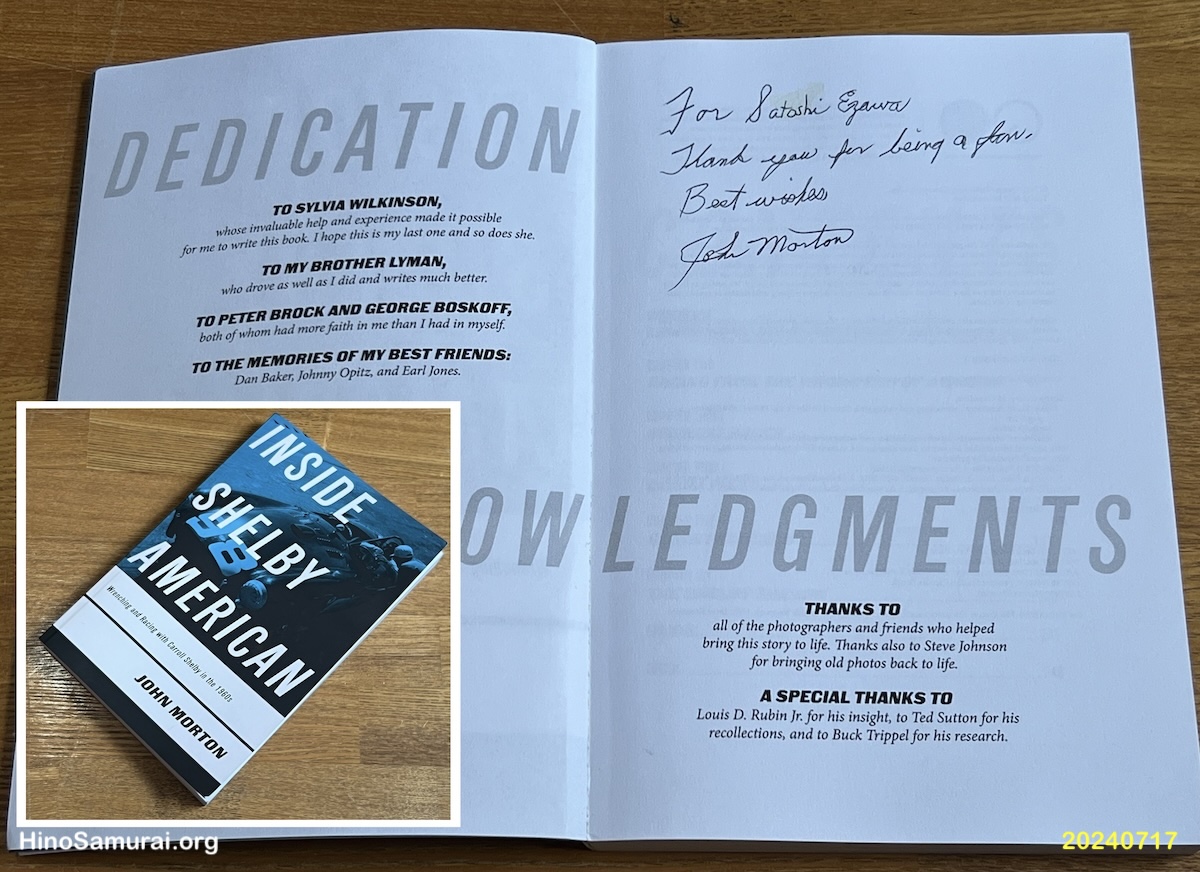 DEDICATION
TO SYLVIA WILKINSON,
whose invaluable help and experience made it possible
for me to write this book. I hope this is my last one and so does she.
TO MY BROTHER LYMAN,
who drove as well as I did and writes much better.
TO PETER BROCK AND GEORGE BOSKOFF,
both of whom had more faith in me than I had in myself.
TO THE MEMORIES OF MY BEST FRIENDS:
Dan Baker, Johnny Opitz, and Earl Jones.
For Satoshi Ezawa
Thank you for being a fan.
Best wishes
John Morton
OWLEDGMENTS
THANKS TO
all of the photographers and friends who helped
bring this story to life. Thanks also to Steve Johnson
for bringing old photos back to life.
A SPECIAL THANKS TO
Louis D. Rubin Jr. for his insight, to Ted Sutton for his
recollections, and to Buck Trippel for his research.
INSIDE
SHELBY
AMERICAN
98
Wrenching and Racing with Carroll Shelby in the 1960s
JOHN MORTON
HinoSamurai.org
20240717